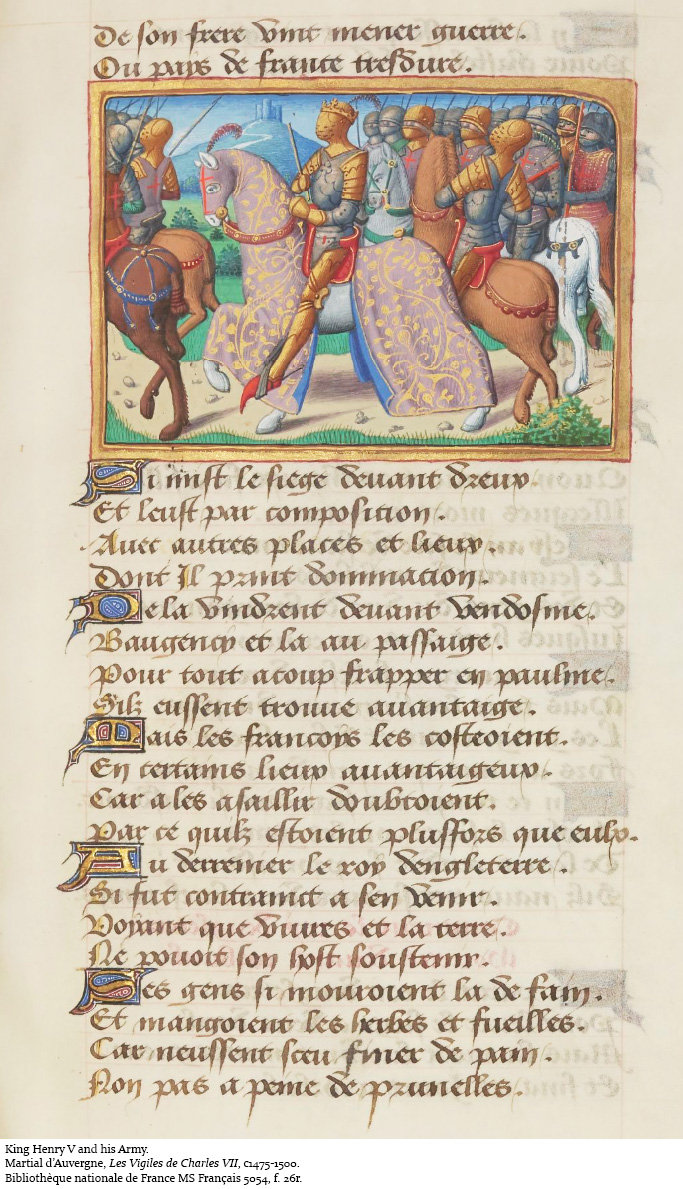 De son frere vint mener guerre.
Ou pays de france tresdure.
Si mist le siege deuant dreux.
Et leust par composition.
Auec autres places et lieux.
Dont Il print dominacion.
De la vindrent deuant vendosme.
Baugency et la au passaige.
Pour tout acoup frapper en paulme.
Silz eussent trouue auantaige.
Mais les francoys les costeoient.
En certains lieux auantaigeux.
Car a les asaillir doubtoient.
Par ce quilz estoient plusfors que eulx.
Au derrenier le roy dengleterre.
Si fut contrainct a sen venir.
Voyant que viures et la terre.
Ne pouoit son host soustenir.
Ses gens si mouroient la de fain.
Et mangoient les herbes et fueilles.
Car neussent sceu finer de pain.
Non pas a peine de prunelles.
King Henry V and his Army.
Martial d'Auvergne, Les Vigiles de Charles VII, c1475-1500.
Bibliothèque nationale de France MS Français 5054, f. 26r.